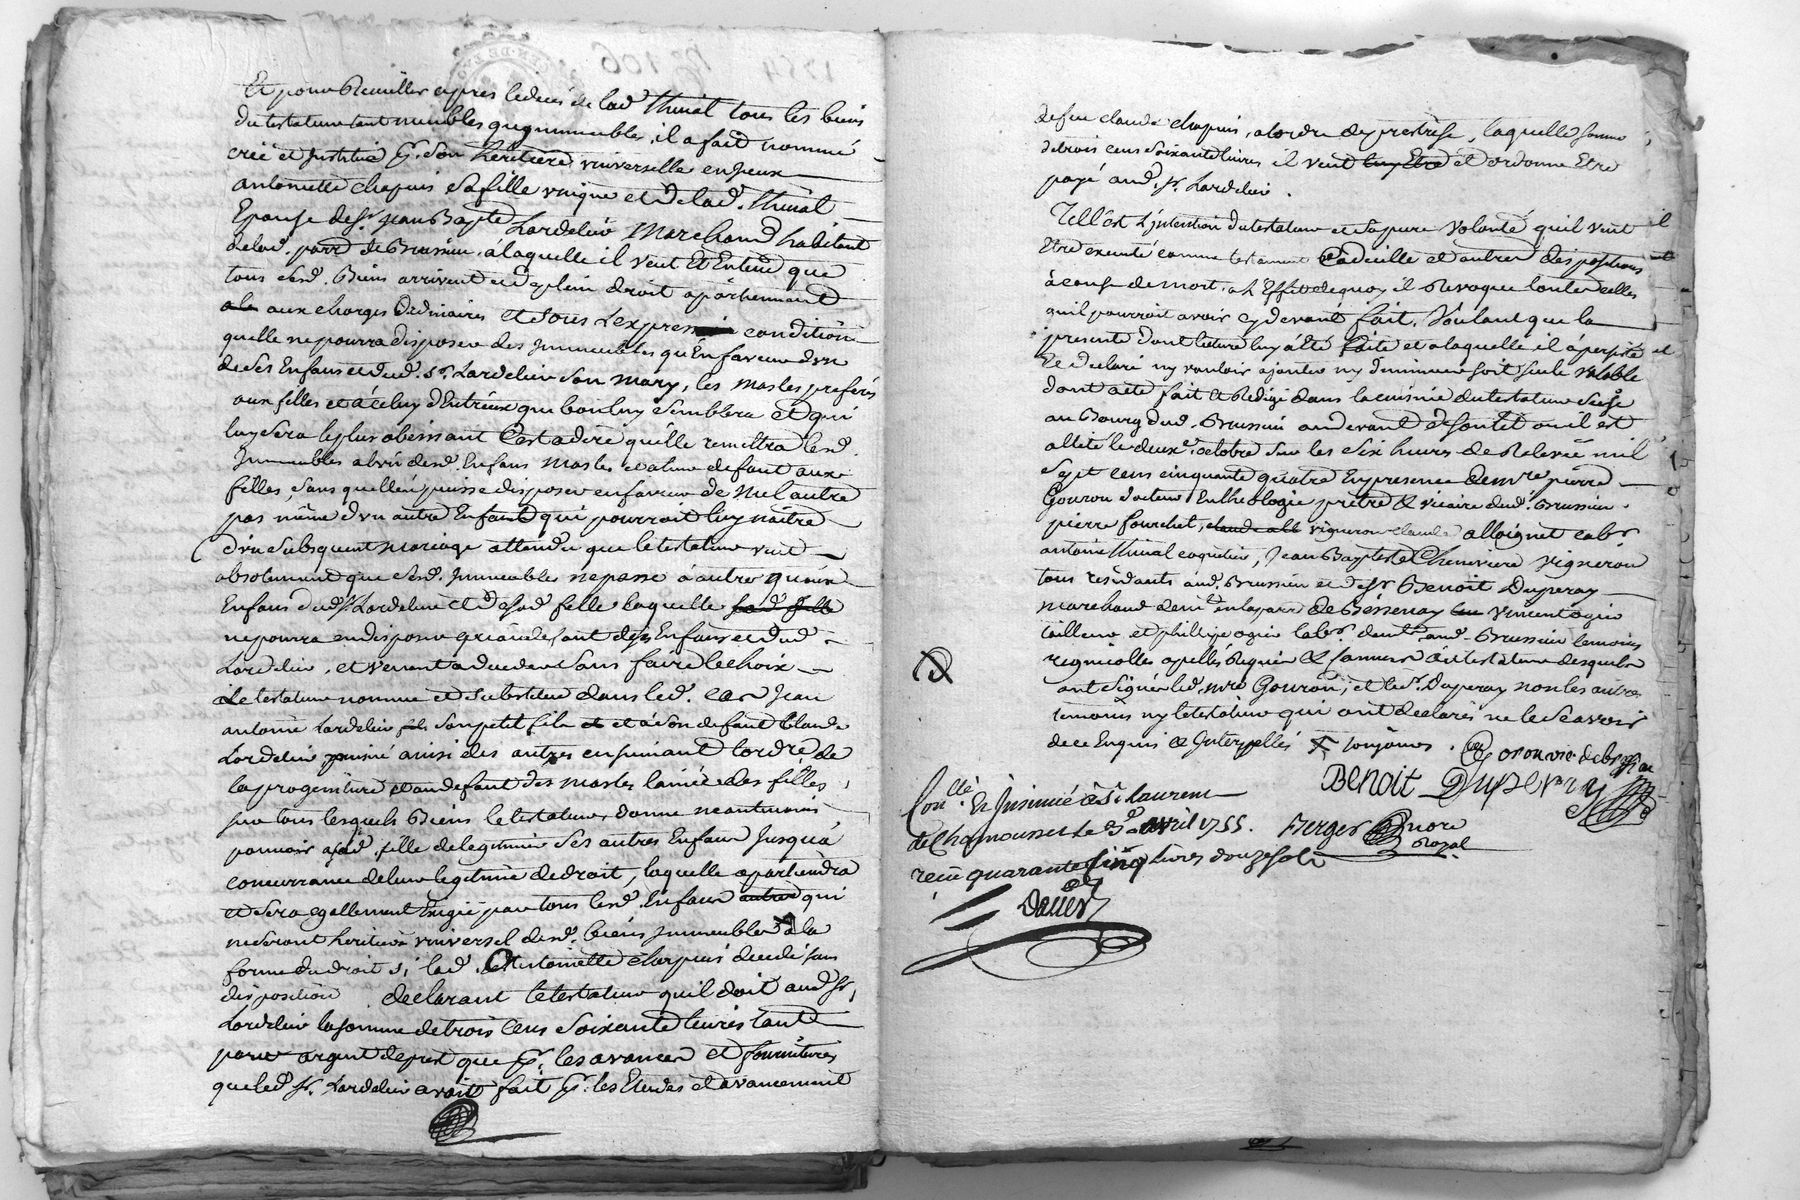 Et pour Recuillir apres le deces de lad. thuial tous les biens
du testateur tant meubles qu'immeubles, il a fait nommé
crée et Institué p. Son heritiere universelle
antoinette chapuis Sa fille unique et de lad. thuial
Epouse de Sr. Jean Bapte Lardelier Marchand habitant
delad. parr de Brussieu, a laquelle il veut Et Entend que
tous cesd. Biens arrivent de plein droit apartiennent
aux charges ordinaires et Sous L'expresse condition
quelle ne pourra disposer des Immeubles qu'En faveur d'un
de Ses Enfans et dud. sr. Lardelier Son mary, les masles preferés
aux filles et à Celuy d'Entr'eux que bon luy Semblera et qui
luy Sera le plus obeissant C'est a dire qu'elle remettra lesd.
Immeubles a l'un desd. Enfans masles et a leur defaut aux
filles, Sans quelle puisse disposer en faveur de Nul autre
pas même d'un autre Enfant qui pourroit luy naitre
d'un Subsequent mariage attendu que le testateur veut
absolument que cesd. Immeubles ne passe à autres qu'aux
Enfans dud. Sr Lardelier et de Sad. fille laquelle sad. fille
ne pourra en disposer qu'a Enfans et dud.
Lardelier, et venant a deceder Sans faire le choix
Le testateur nomme et Substitue dans led. cas Jean
antoine Lardelier Son petit fils et et a Son defaut Claude
Lardelier puiné ainsi des autres en Suivant l'ordre de
la progeniture et au defaut des masles l'ainée des filles,
sur tous lesquels Biens le testateur donne neantmoins
pouvoir a sad. fille de legitimer Ses autres Enfans Jusqu'à
concurrance de leur legitime de droit, laquelle apartiendra
et Sera egallement Exigée par tous lesd. Enfans autres qui
ne Seront heritiers universel desd. biens Immeubles à la
forme du droit Si lad. Antoinette chapuis decede sans
disposition declarant le testateur quil doit aud. sr.
Lardelier la Somme de trois Cens Soixante livres tant
pour argent de pret que p. les avances et fournitures
que led. sr. Lardelier avoit fait p. les Etudes et avancement
de feu claude chapuis, a l'ordre de prestrise, laquelle somme
de trois cens Soixante livres il veut luy Etre et ordonne Etre
payé aud. sr. Lardelier.
Tell'Est L'intention du testateur et Sa pure volonté quil veut
Etre executé comme testament Codicille et autres dispositions
à cause de mort, a L'Effet de quoy il Revoque toutes celles
quil pourroit avoir cy devant fait. Voulant que la
presente dont lecture luy à Eté faite et a laquelle il à persisté
Et declaré ny vouloir ajouter ny diminuer soit Seule valable
dont acte fait et Redigé dans la cuisine du testateur Seise
au Bourg dud. Brussieu au devant ou il est
alité le deuxe. octobre Sur les Six heures de Relevée mil
Sept cens cinquante quatre En presence de mre. pierre
Gouron docteur En theologie prêtre & vicaire dud. Brussieu.
pierre fourchet, claude all vigneron claude alloignet labr
antoine thuial coquetier, Jean Baptiste Cheneviere vigneron
tous residants aud. Brussieu et de Sr Benoit Duperay
marchand demt. en la parr de Bessenay vincent ogier
tailleur et philippe ogier labr. demt. aud. Brussieu temoins
regnicolles apellés Requis & Connus du testateur desquels
ont Signés led. mre Gouron, et led. Sr. Duperay non les autres
temoins ny le testateur qui ont declarés ne le Scavoir
de ce Enquis & Interpellés toujours.
BENOIT DUPERAY
Conllé. Et Insinué à St. Laurent
de Chamousset le 3e avril 1755.
recu quarante Cinq livres douze Sols
Berger Nore
Royal